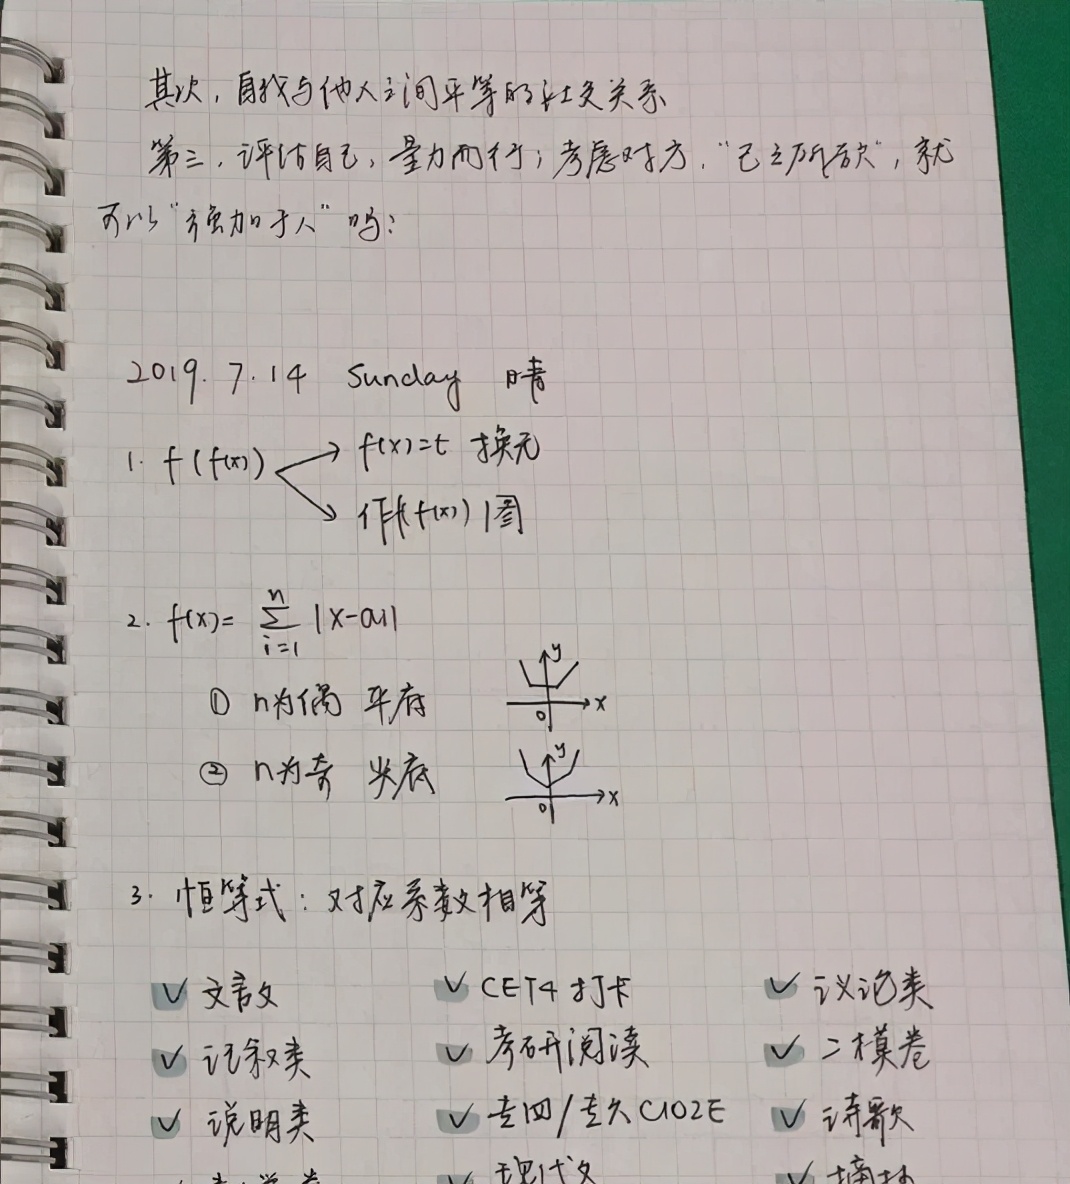 其次，自我与他人之间平等的社交关系
第三，评估自己，量力而行；考虑对方，“己之所欲”，就
可以“强加于人”吗？
2019.7.14 Sunday 晴
1. f(f(x))
f(x)=t 换元
作f(f(x))图
2. f(x)= n∑i=1 |x-ai|
① n为偶 平底
y
x
0
② n为奇 尖底
y
x
0
3. 恒等式：对应系数相等
✓ 文言文 ✓ CET4 打卡 ✓ 议论类
✓ 记叙类 ✓ 考研阅读 ✓ 二模卷
✓ 说明类 ✓ 专四/专八 ClOZE ✓ 诗歌
✓ 现代文 ✓ 摘抄